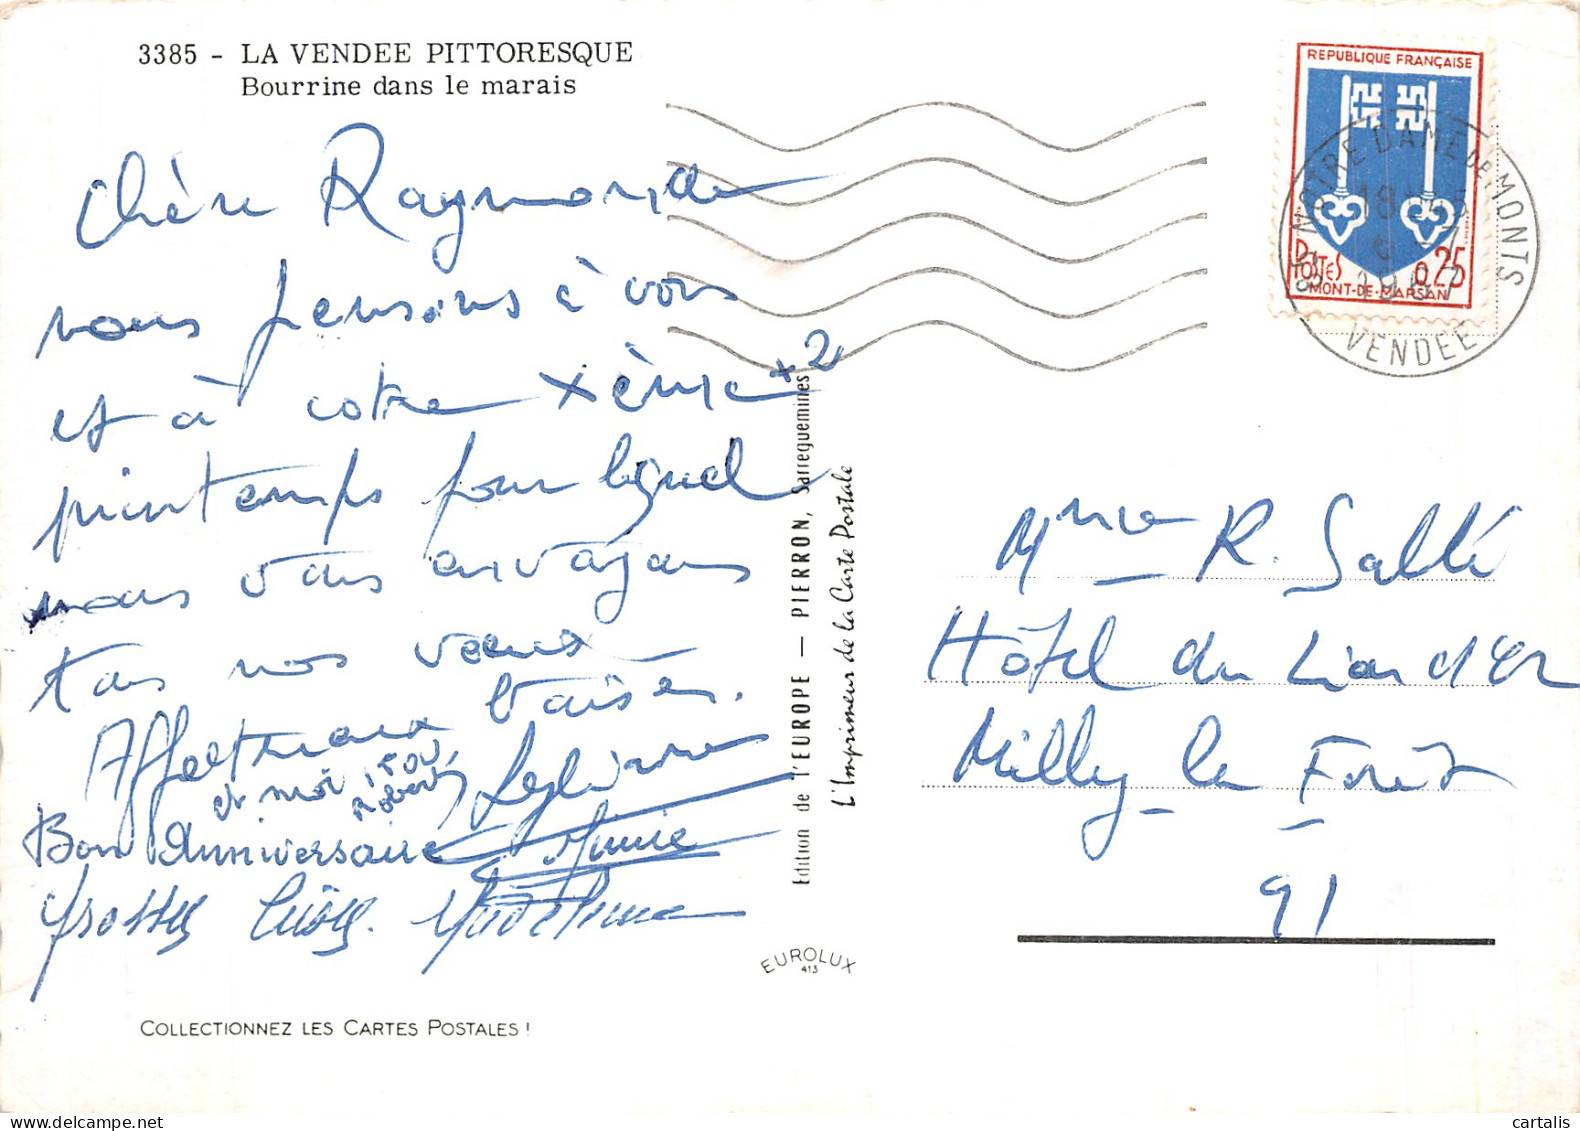 3385 - LA VENDEE PITTORESQUE
Bourrine dans le marais
Chère Raymonde
nous pensons à vous
et à votre Xème +2
printemps pour lequel
nous vous envoyons
tous nos vœux
Affectueux baisers.
et moi
Bon Anniversaire
Edition de l'EUROPE — PIERRON, Sarreguemines
L'Imprimeur de la Carte Postale
EUROLUX
413
COLLECTIONNEZ LES CARTES POSTALES !
REPUBLIQUE FRANÇAISE
POSTES 0,25
MONT-DE-MARSAN
NOTRE DAME DE MONTS
VENDEE
Mme R. Sallé
Hôtel du Lion d'Or
Milly-la Forêt
91
cartalis